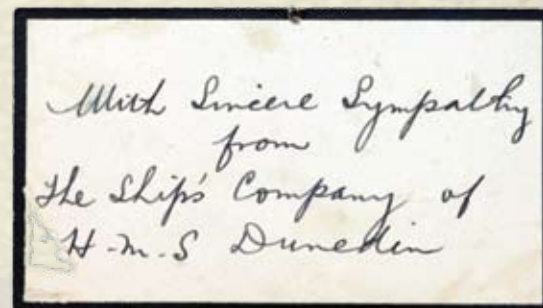 With Sincere Sympathy
from
The Ship's Company of
H.M.S Dunedin